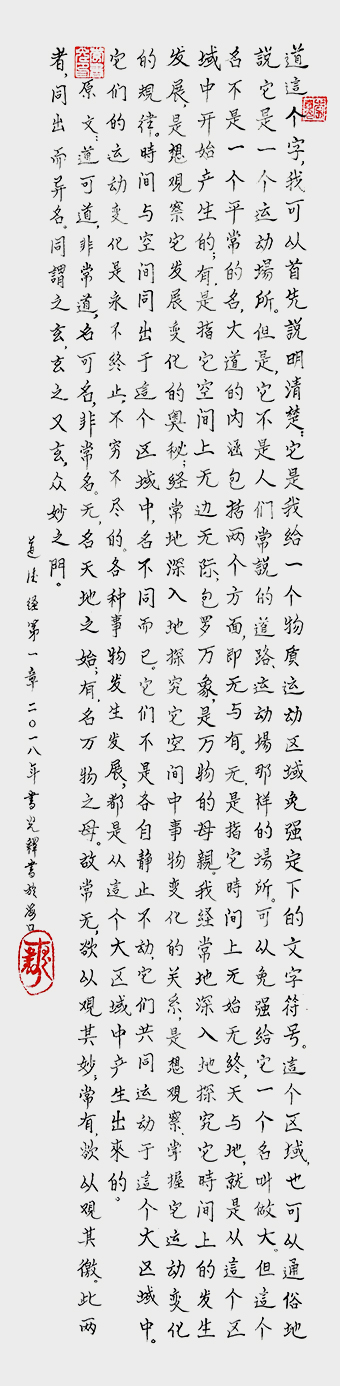 道這个字，我可从首先説明清楚：它是我给一个物质运动区域免强定下的文字符号。這个区域，也可从通俗地
説它是一个运动場所。但是，它不是人们常説的道路、运动場那样的場所。可从免强给它一个名叫做大。但這个
名不是一个平常的名，大道的内涵包括两个方面，即无与有。无，是指它時间上无始无终，天与地，就是从這个区
域中开始产生的；有，是指它空间上无边无际，包罗万象，是万物的母親。我经常地深入地探究它時间上的发生
发展，是想观察它发展变化的奥秘；经常地深入地探究它空间中事物变化的关系，是想观察、掌握它运动变化
的规律。時间与空间同出于這个区域中，名不同而已。它们不是各自静止不动，它们共同运动于這个大区域中。
它们的运动变化是永不终止、不穷不尽的。各种事物发生发展，都是从這个大区域中产生出来的。
原文：道可道，非常道，名可名，非常名。无，名天地之始；有，名万物之母。故常无，欲从观其妙；常有，欲从观其徼。此两
者，同出而异名。同謂之玄，玄之又玄，众妙之門。
道德经第一章 二〇一八年 書光釋書於海口